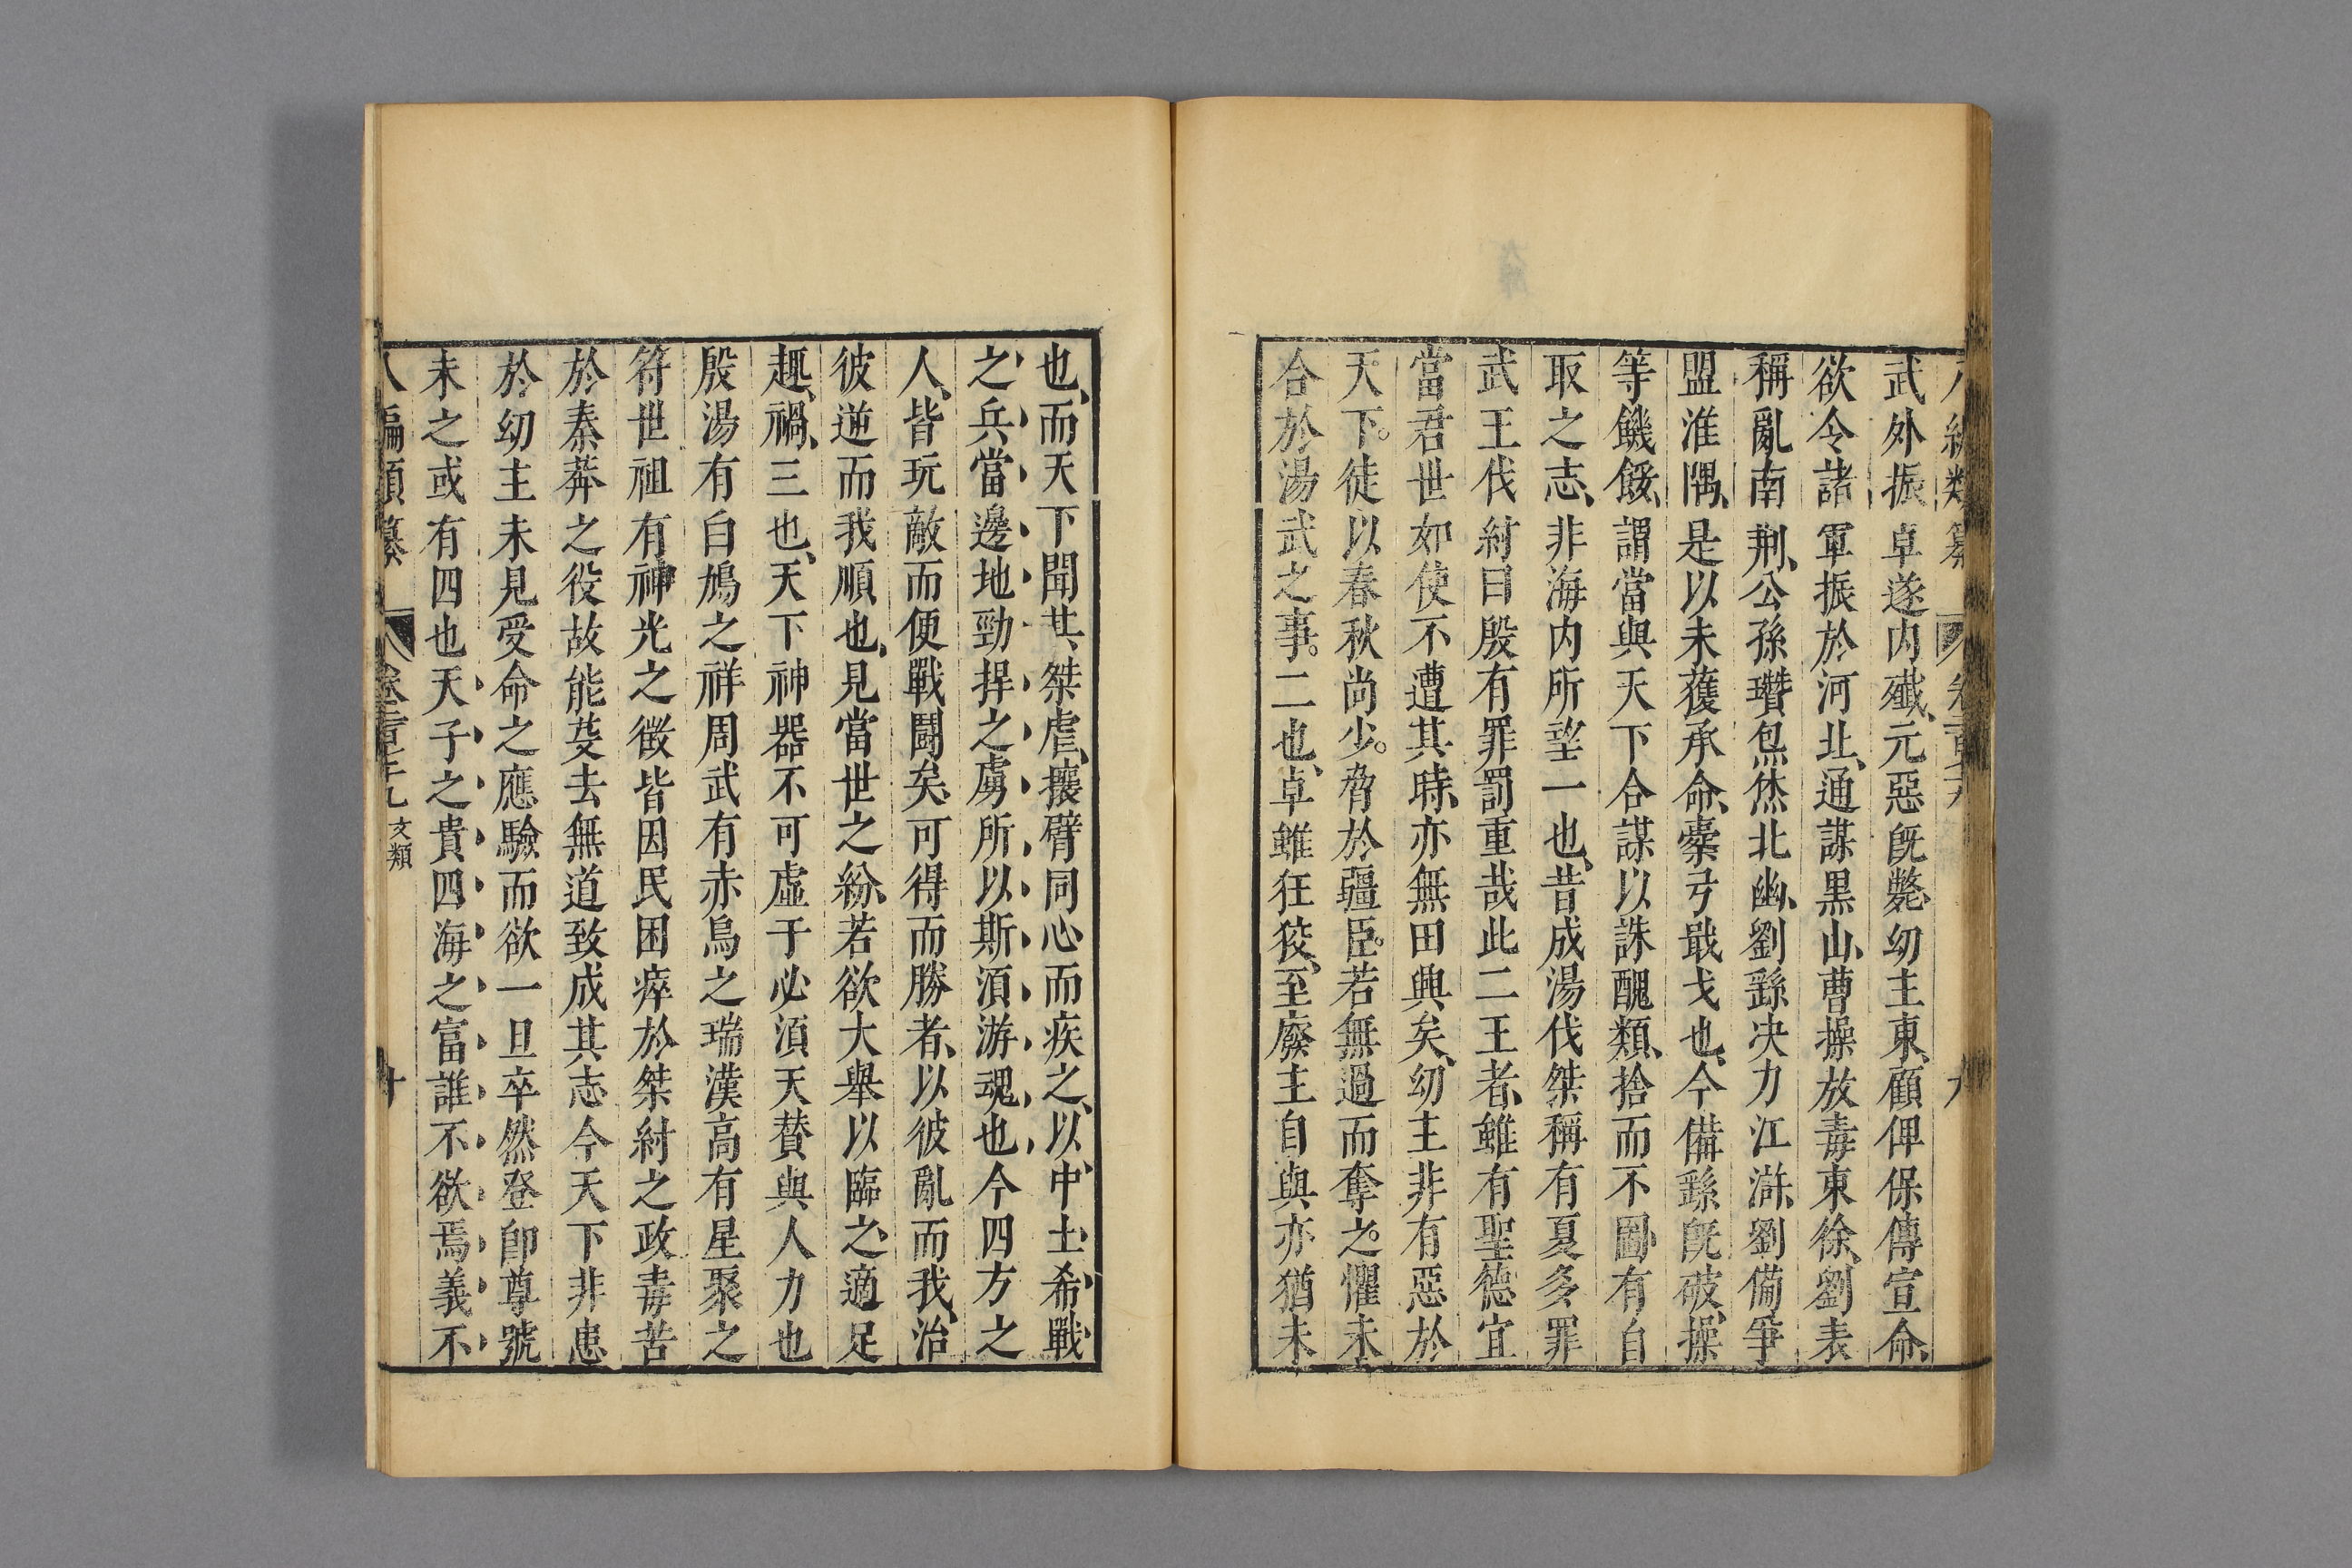 武外振卓遂内殲元惡既斃幼主東顧俾保傅宣命
欲令諸軍振於河北通謀黒山曹操放毒東徐劉表
稱亂南荆公孫瓚炰烋北幽劉繇决力江滸劉備爭
盟淮隅是以未獲承命櫜弓戢戈也今備繇既破操
等饑餒謂當與天下合謀以誅醜類捨而不圖有自
取之志非海内所望一也昔成湯伐桀稱有夏多罪
武王伐紂曰殷有罪罰重哉此二王者雖有聖德宜
當君世如使不遭其時亦無田興矣幼主非有惡於
天下徒以春秋尚少脅於疆臣若無過而奪之懼未
合於湯武之事二也卓雖狂狡至廢主自與亦猶未
也而天下聞其桀虐攘臂同心而疾之以中土希戰
之兵當邊地勁捍之虜所以斯須游魂也今四方之
人皆玩敵而便戰鬪矣可得而勝者以彼亂而我治
彼逆而我順也見當世之紛若欲大舉以臨之適足
趣禍三也天下神器不可虛于必須天贊與人力也
殷湯有白鳩之祥周武有赤烏之瑞漢高有星聚之
符世祖有神光之徵皆因民困瘁於桀紂之政毒苦
於秦莽之役故能芟去無道致成其志今天下非患
於幼主未見受命之應驗而欲一旦卒然登卽尊號
未之或有四也天子之貴四海之富誰不欲焉義不
八編類纂 卷二百二十九 文類 十